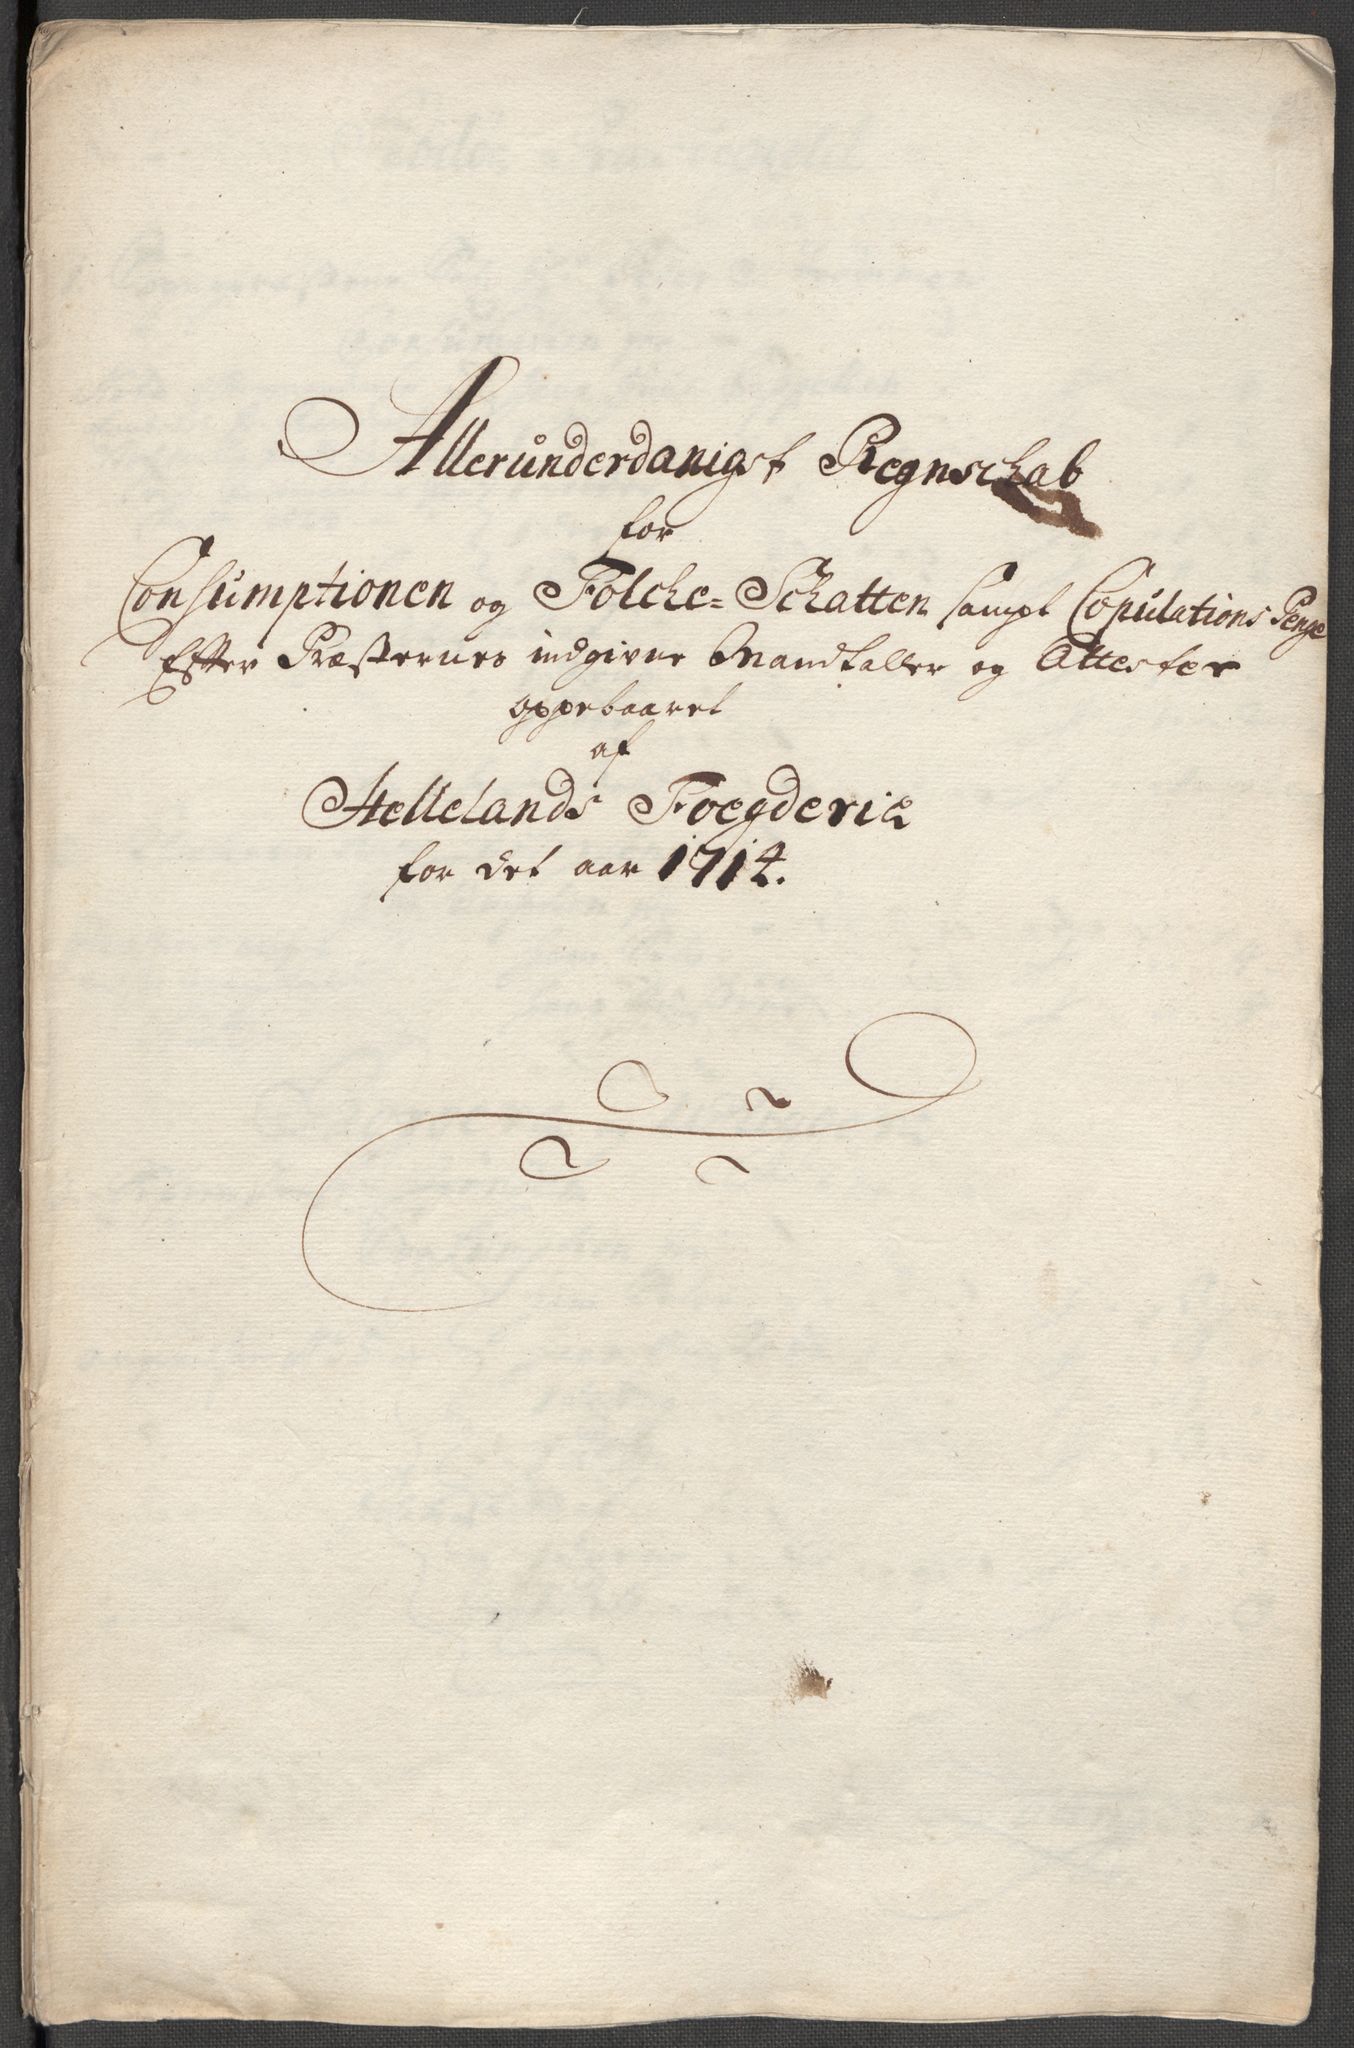 Allerunderdanigst Regnschab
for
Consumptionen og Folche=Schatten sampt Copulations Penge
Effter Præsternes indgivne Mandtaller og Attester
oppebaaret
af
Hellelands Foegderie
for det aar 1714.